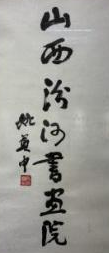 山西汾河書画院
姚奠中